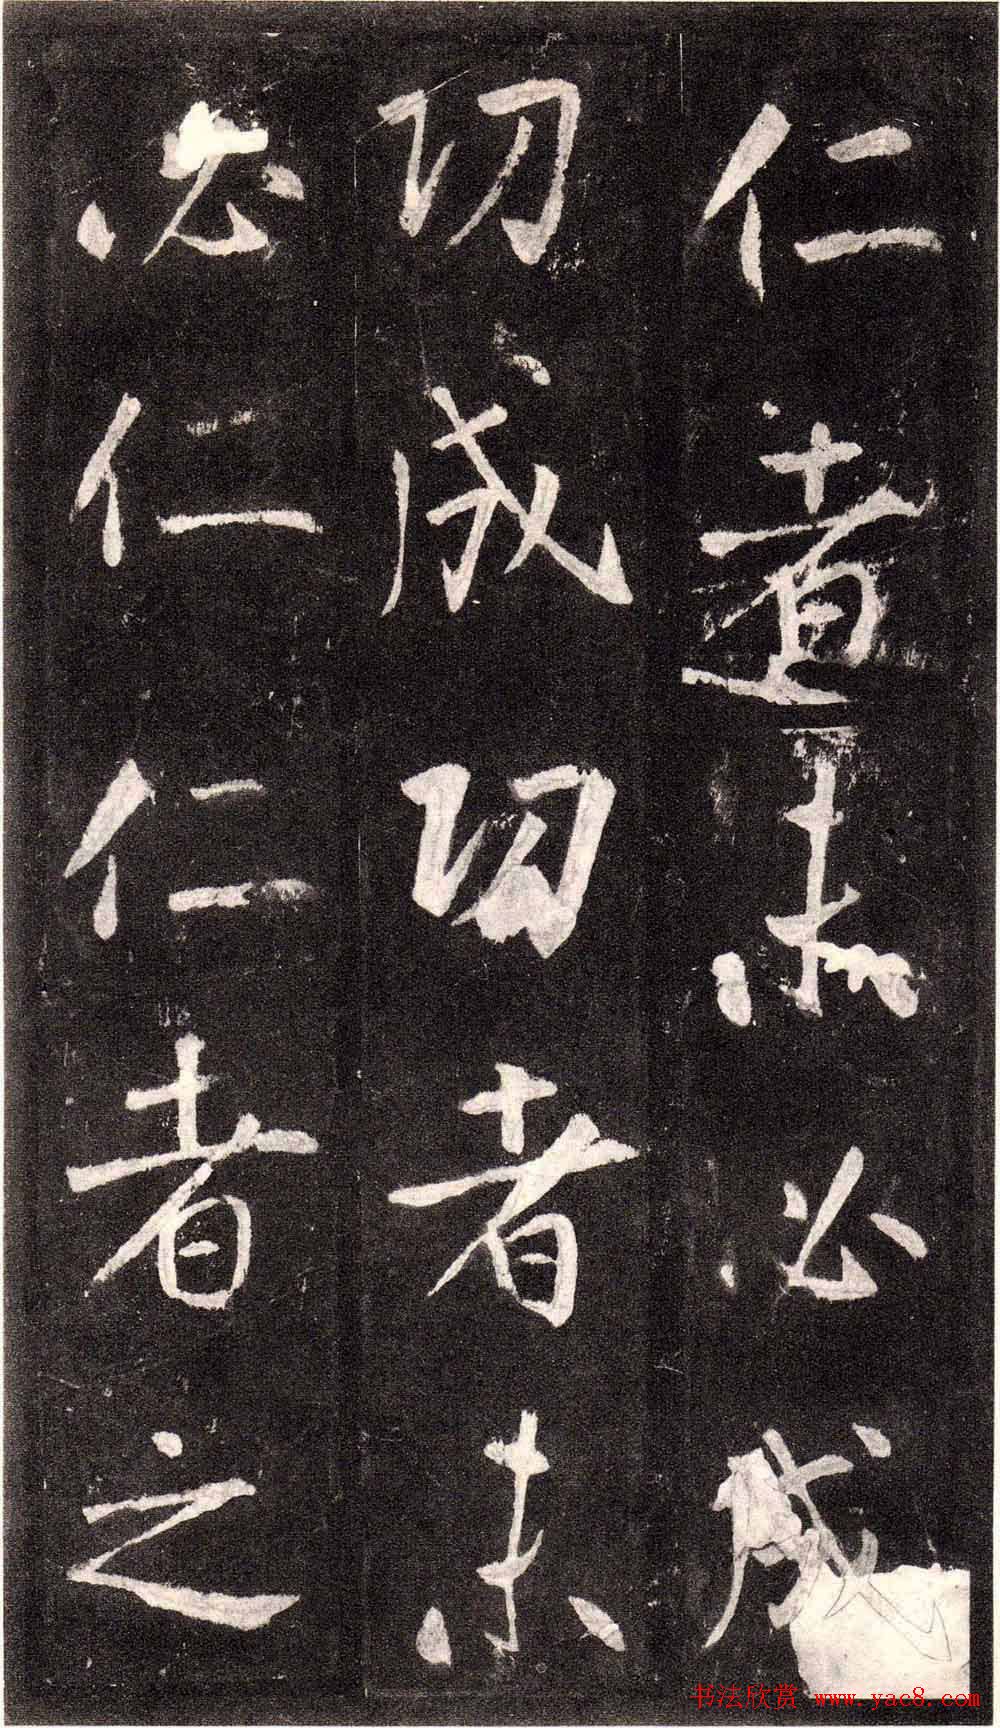 仁者未必成
功成功者未
必仁仁者之
书法欣赏 www.yac8.com